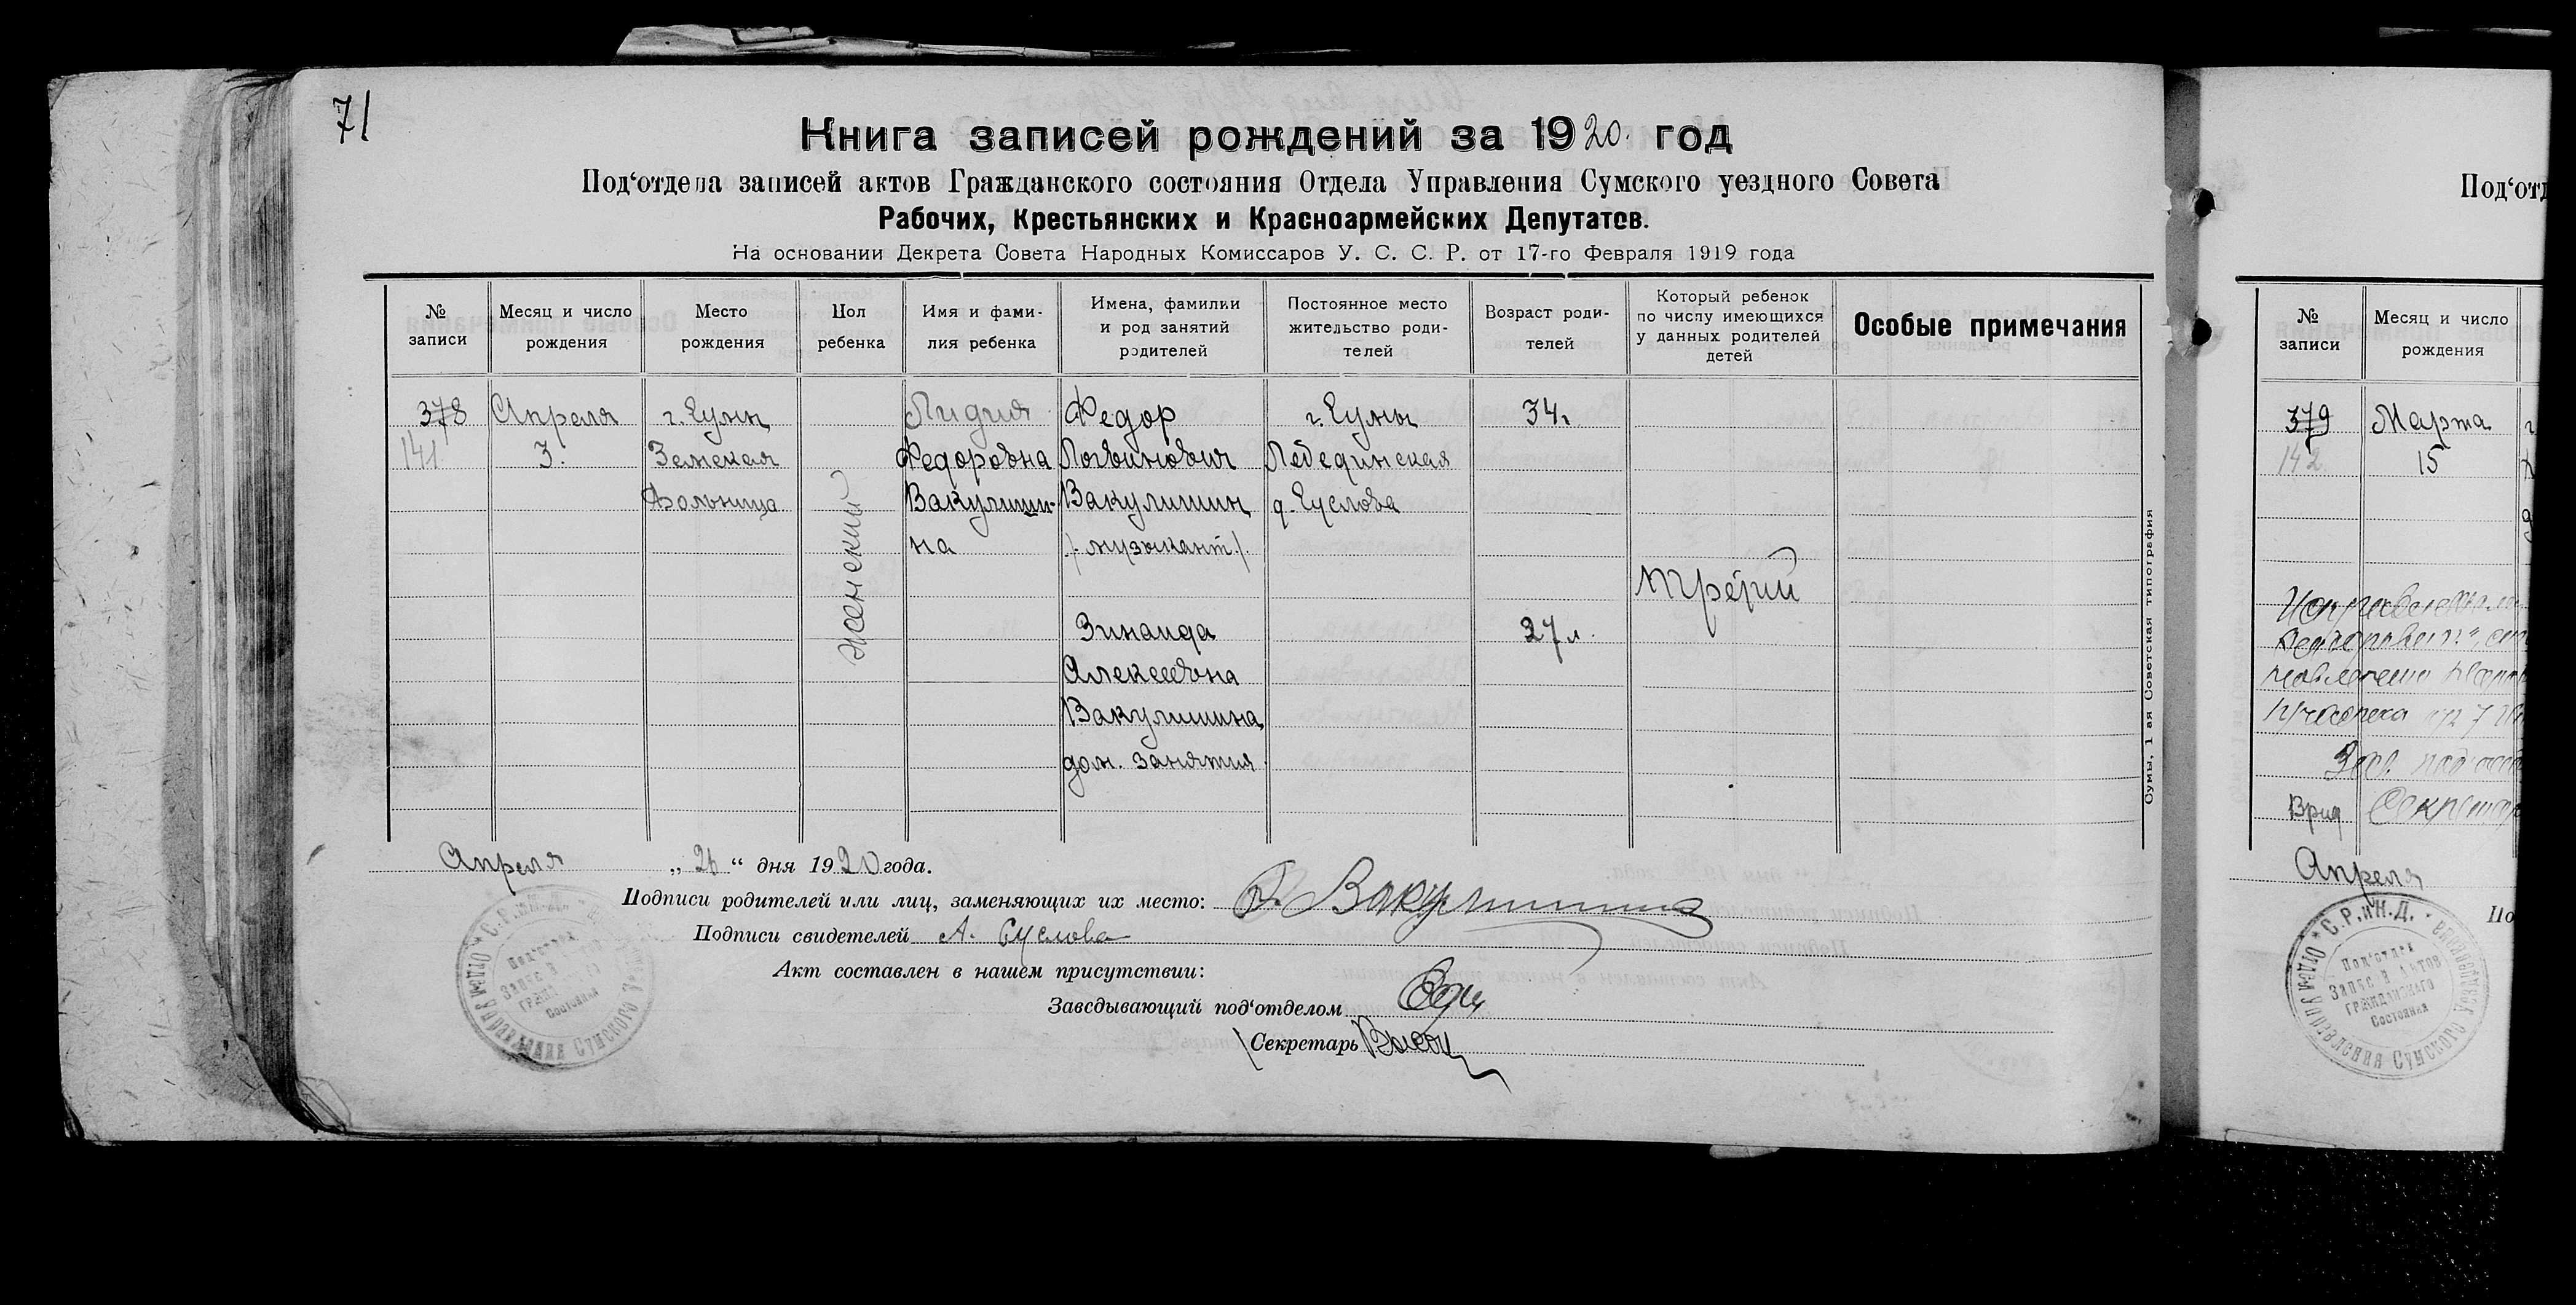 71
Книга записей рождений за 1920. год
Под‘отдела записей актов Гражданского состояния Отдела Управления Сумского уездного Совета
Рабочих, Крестьянских и Красноармейских Депутатов.
На основании Декрета Совета Народных Комиссаров У. С. С. Р. от 17-го Февраля 1919 года
№ записи
Месяц и число рождения
Место рождения
Пол ребенка
Имя и фамилия ребенка
Имена, фамилии и род занятий родителей
Постоянное место жительство родителей
Возраст родителей
Который ребенок по числу имеющихся у данных родителей детей
Особые примечания
378 Апреля г. Сумы Лидия Федор г. Сумы 34 г.
141 3. Земская Федоровна Логвинович Лебединская
больница Вакулишин- Вакулишин д. Суслова
на /. музыкант./.
женский
третий
Зинаида 27 л.
Алексеевна
Вакулишина
дом. занятия
Апреля „ 26 “ дня 1920 года.
Подписи родителей или лиц, заменяющих их место: Вакулишин
Подписи свидетелей А. Суслова
Акт составлен в нашем присутствии:
Заведывающий под‘отделом
Секретарь
Сумы, 1-ая Советская типография
Отдел Управления Сумского
С.Р.и Н.Д.
Под‘отд
№ записи
Месяц и число рождения
379 Марта
142. 15
Врид Секретар
Апреля
По
С.Р.и Н.Д.
Отдел Управления Сумского
Под‘отдел
Записи Актов
Гражданскаго
Состояния